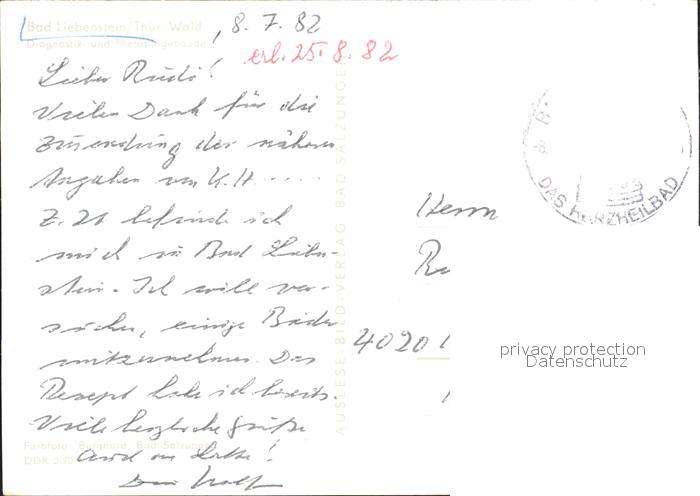 Bad Liebenstein/Thür. Wald, 8.7.82
Diagnostik- und Therapiegebäude
erl. 25.8.82
Lieber Rudi!
Vielen Dank für die
Zusendung der näheren
Angaben von K.H. ....
Z. Zt. befinde ich
mich in Bad Lieben-
stein. Ich will ver-
suchen, einige Bäder
mitzunehmen. Das
Rezept habe ich bereits.
Viele herzliche Grüße
Farbfoto: Burghard, Bad Salzungen
DDR
Dein
AUSLESE-BILD-VERLAG BAD SALZUNGEN
DAS HERZHEILBAD
Herrn
4020
privacy protection
Datenschutz